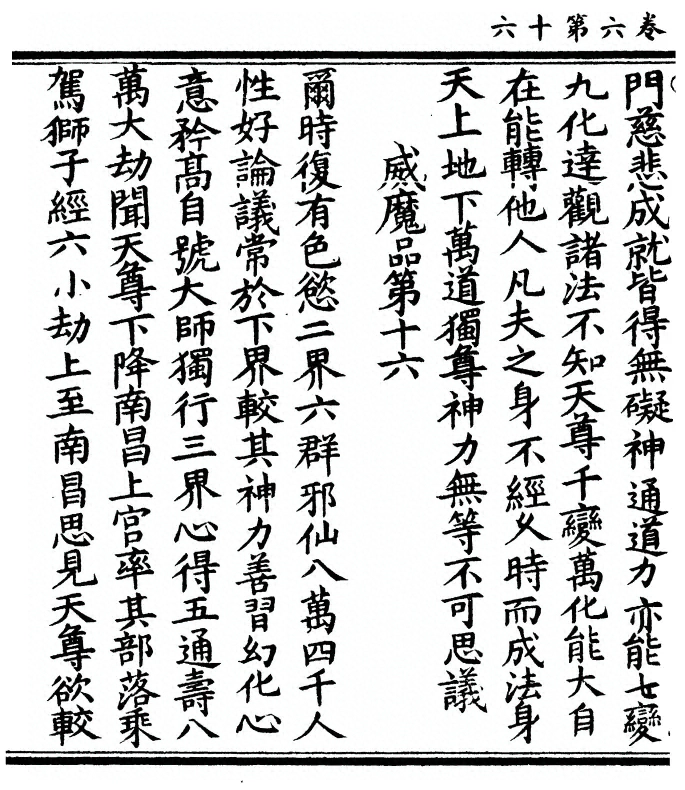 卷六第十六
門慈悲成就皆得無礙神通道力亦能七變
九化達觀諸法不知天尊千變萬化能大自
在能轉他人凡夫之身不經久時而成法身
天上地下萬道獨尊神力無等不可思議
威魔品第十六
爾時復有色慾二界六群邪仙八萬四千人
性好論議常於下界較其神力善習幻化心
意矜高自號大師獨行三界心得五通壽八
萬大劫聞天尊下降南昌上宮率其部落乘
駕獅子經六小劫上至南昌思見天尊欲較